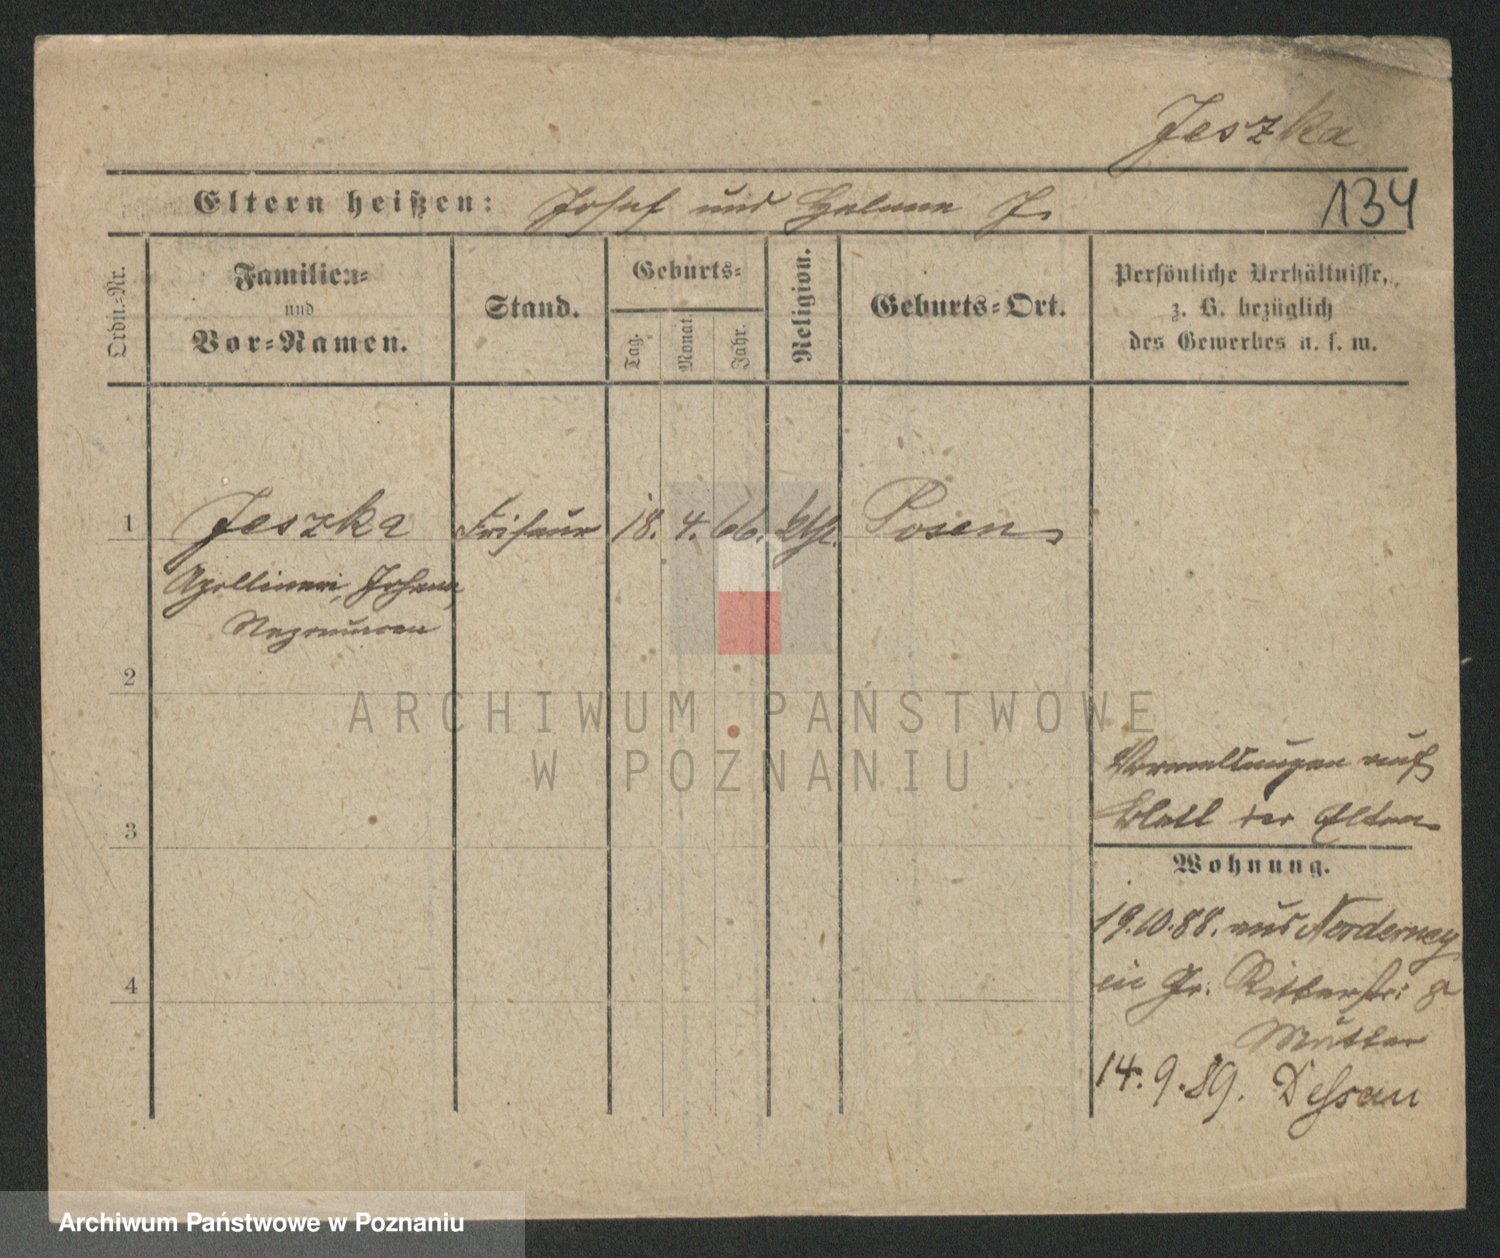 Jeszka
134
Eltern heißen: Josef und Helene J.
Ordn.-Nr.
Familien-
und
Vor-Namen.
Stand.
Geburts-
Tag.
Monat.
Jahr.
Religion.
Geburts-Ort.
Persönliche Verhältnisse,
z. B. bezüglich
des Gewerbes u. s. w.
1 Jeszka Friseur 18. 4. 66. kth. Posen
Apollinari, Johann
2
ARCHIWUM PAŃSTWOWE
W POZNANIU
Vormeldungen auf
Blatt der Eltern
3
Wohnung.
19.10.88. aus Norderney
in Gr. Ritterstr: 8
4
Mutter
14.9.89. Dessau
Archiwum Państwowe w Poznaniu